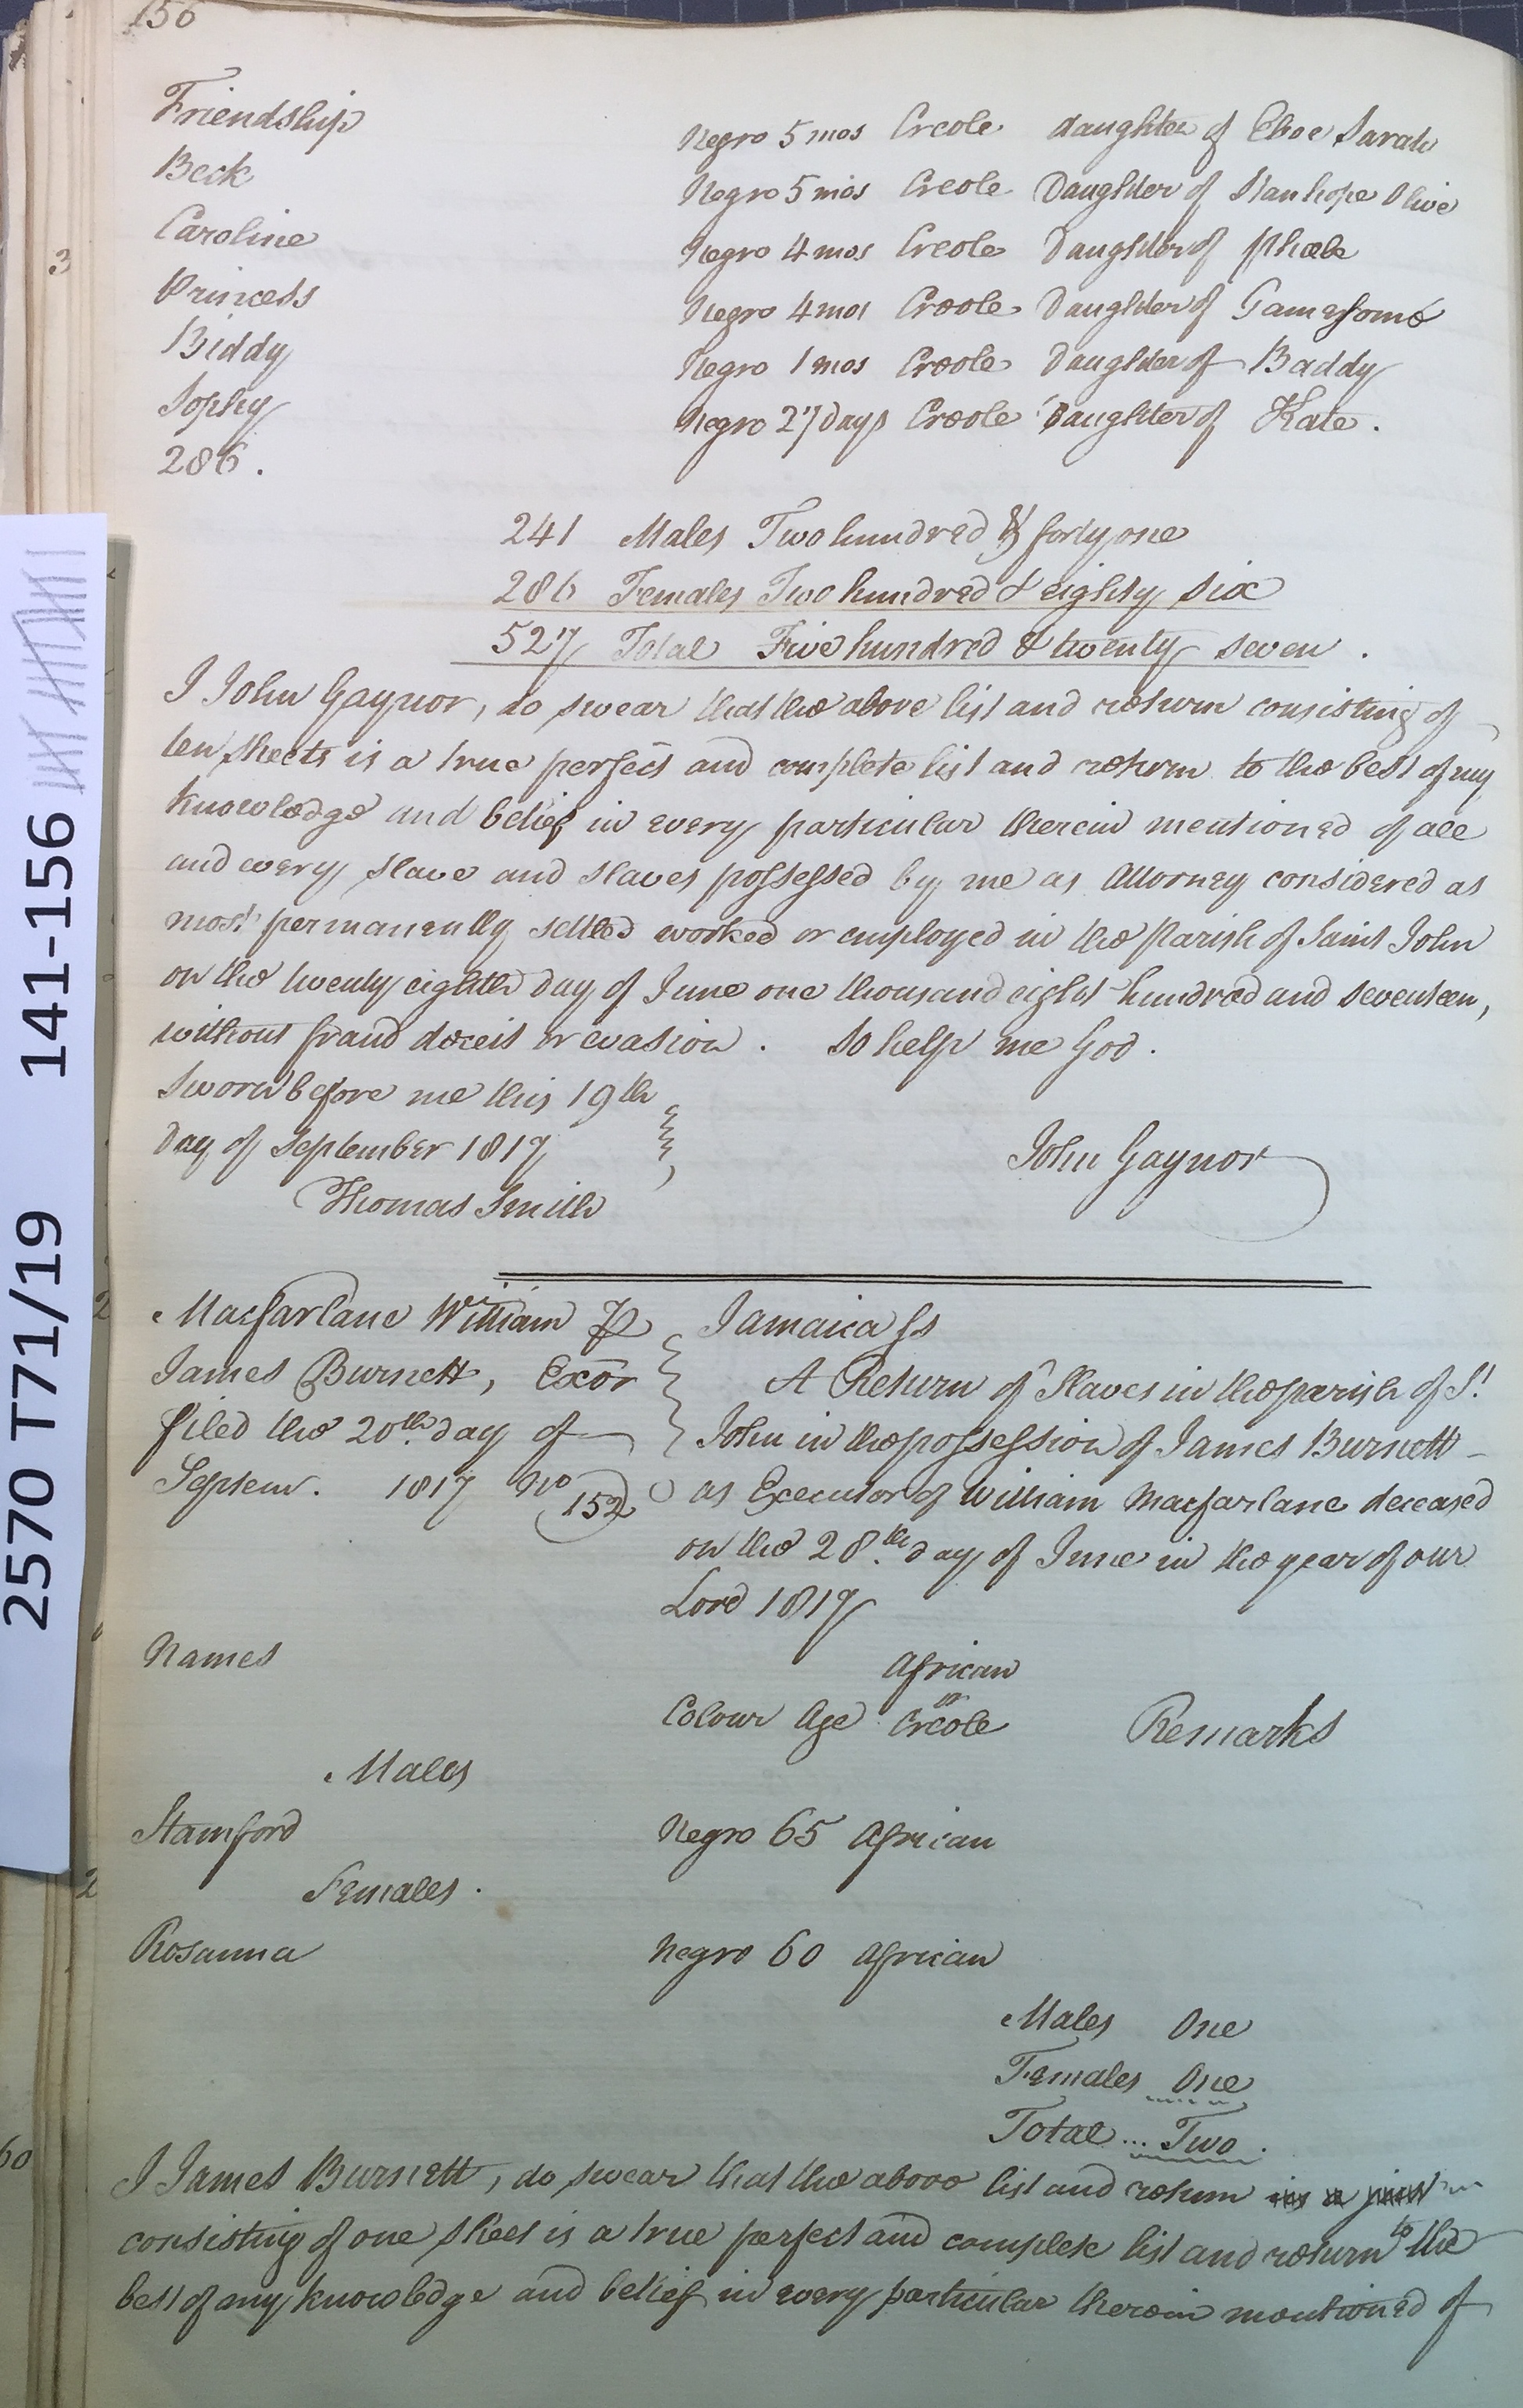 156
Friendship Negro 5 mos Creole daughter of Eboe Sarah
Beck Negro 5 mos Creole Daughter of Stanhope Olive
Caroline Negro 4 mos Creole Daughter of Phœbe
Princess Negro 4 mos Creole Daughter of Gamesome
Biddy Negro 1 mos Creole Daughter of Baddy
Sophy Negro 27 Days Creole Daughter of Kate.
286.
241 Males Two hundred & forty one
286 Females Two hundred & eighty six
527 Total Five hundred & twenty seven.
I John Gaynor, do swear that the above list and return consisting of
ten sheets is a true perfect and complete list and return to the best of my
knowledge and belief in every particular therein mentioned of all
and every slave and slaves possessed by me as Attorney considered as
most permanently settled worked or employed in the Parish of Saint John
on the twenty eighth day of June one thousand eight hundred and seventeen,
without fraud deceit or evasion. So help me God.
Sworn before me this 19th
Day of September 1817
John Gaynor
Thomas Smith
Macfarlane William
James Burnett, Exōr
filed the 20th. day of
Septem. 1817 No 152
Jamaica Ss
A Return of Slaves in the parish of St
John in the possession of James Burnett
as Executor of William Macfarlane deceased
on the 28th. day of June in the year of our
Lord 1817
Names
African
or
Colour Age Creole Remarks
Males
Stamford Negro 65 African
Females.
Rosanna Negro 60 African
Males One
Females One
Total ... Two.
I James Burnett, do swear that the above list and return is a just
consisting of one sheet is a true perfect and complete list and return to the
best of my knowledge and belief in every particular therein mentioned of
2570 T71/19 141-156
3
2
2
60